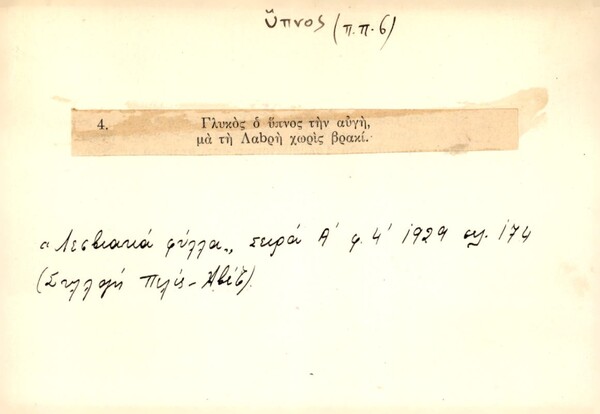 ὕπνος (π.π. 6)
4. Γλυκὸς ὁ ὕπνος τὴν αὐγὴ,
μὰ τὴ Λαbρὴ χωρὶς βρακί.
«Λεσβιακά φύλλα», σειρά Α' φ. 4' 1929 σελ. 174
(Συλλογή